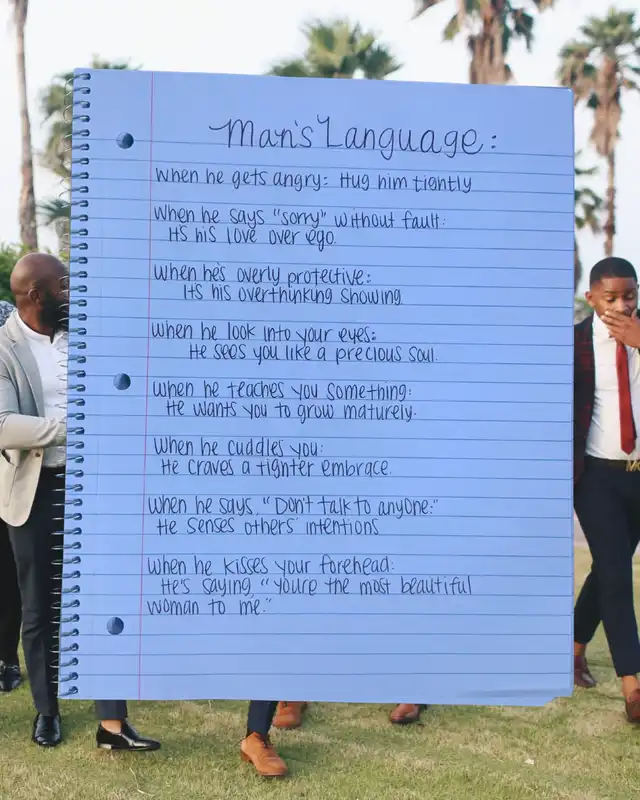 Man's Language:
When he gets angry: Hug him tightly
When he says "sorry" without fault:
It's his love over ego.
When he's overly protective:
It's his overthinking showing
When he look into your eyes:
He sees you like a precious soul.
When he teaches you something:
He wants you to grow maturely.
When he cuddles you:
He craves a tighter embrace.
When he says, "Don't talk to anyone:"
He senses others' intentions
When he kisses your forehead:
He's saying, "You're the most beautiful
woman to me."